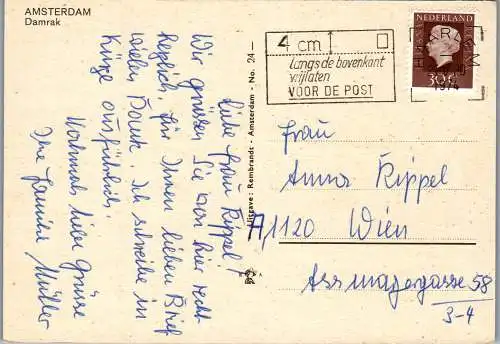 AMSTERDAM
Damrak
Liebe Frau Rippel!
Wir grüssen Sie von hier recht
herzlich, für Ihren lieben Brief
vielen Dank. Ich schreibe in
Kürze ausführlich.
Nochmals liebe Grüsse
Ihre Familie Müller
Uitgave: Rembrandt - Amsterdam - No. 24
4 cm
langs de bovenkant
vrijlaten
VOOR DE POST
HAARLEM
1974
NEDERLAND
30c
Frau
Anna Rippel
A/1120 Wien
Assmayergasse 58
3-4